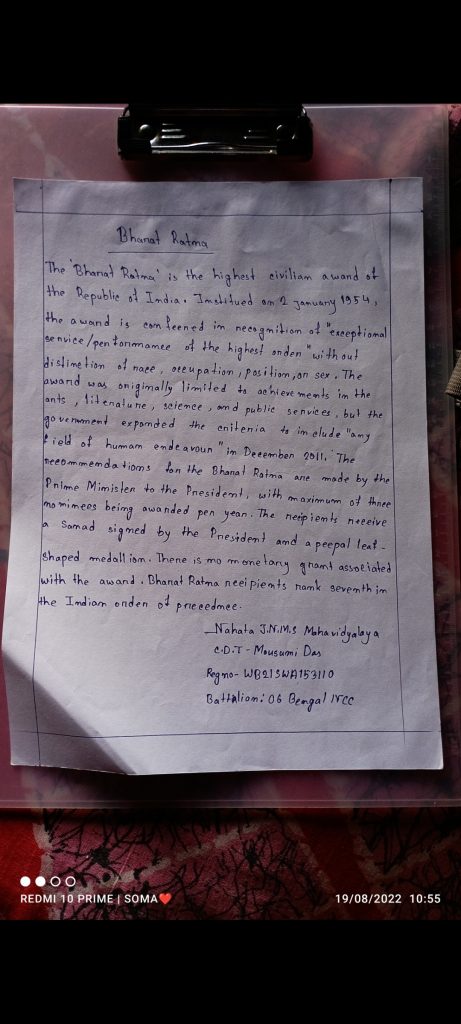 Bharat Ratna
The 'Bharat Ratna' is the highest civilian award of
the Republic of India. Institued on 2 January 1954,
the award is confeened in recognition of "exceptional
service/performance of the highest order "without
distinction of race, occupation, position, or sex. The
award was originally limited to achievements in the
arts, literature, science, and public services. but the
government expanded the criteria to include "any
field of human endeavour "in December 2011. The
recommendations for the Bharat Ratna are made by the
Prime Minister to the President, with maximum of three
nominees being awarded per year. The recipients receive
a Sanad signed by the President and a peepal leaf-
shaped medallion. There is no monetary grant associated
with the award. Bharat Ratna recipients rank seventh in
the Indian order of preceednce.
Nahata J.N.M.S Mahavidyalaya
C.D.T - Mousumi Das
Regno- WB21SWA153110
Battalion: 06 Bengal NCC
REDMI 10 PRIME | SOMA❤
19/08/2022 10:55